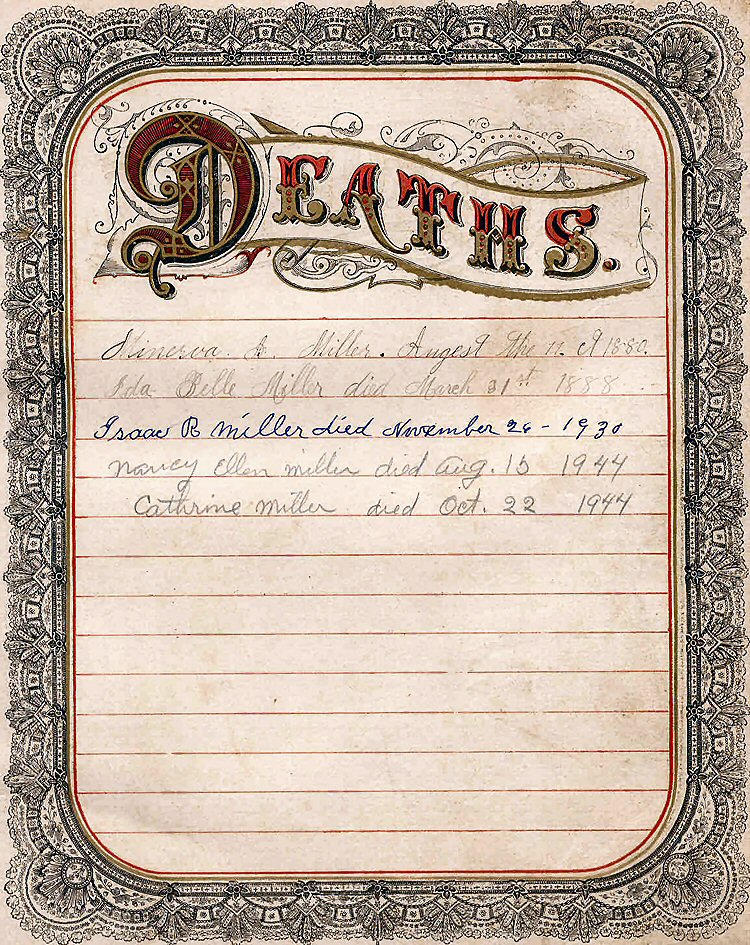 DEATHS.
Minerva. A. Miller. Augest the 11. A 1880.
Ida Belle Miller died March 31st 1888
Isaac R Miller died November 26 - 1930
Nancy Ellen Miller died Aug. 15 1944
Cathrine Miller died Oct. 22 1944